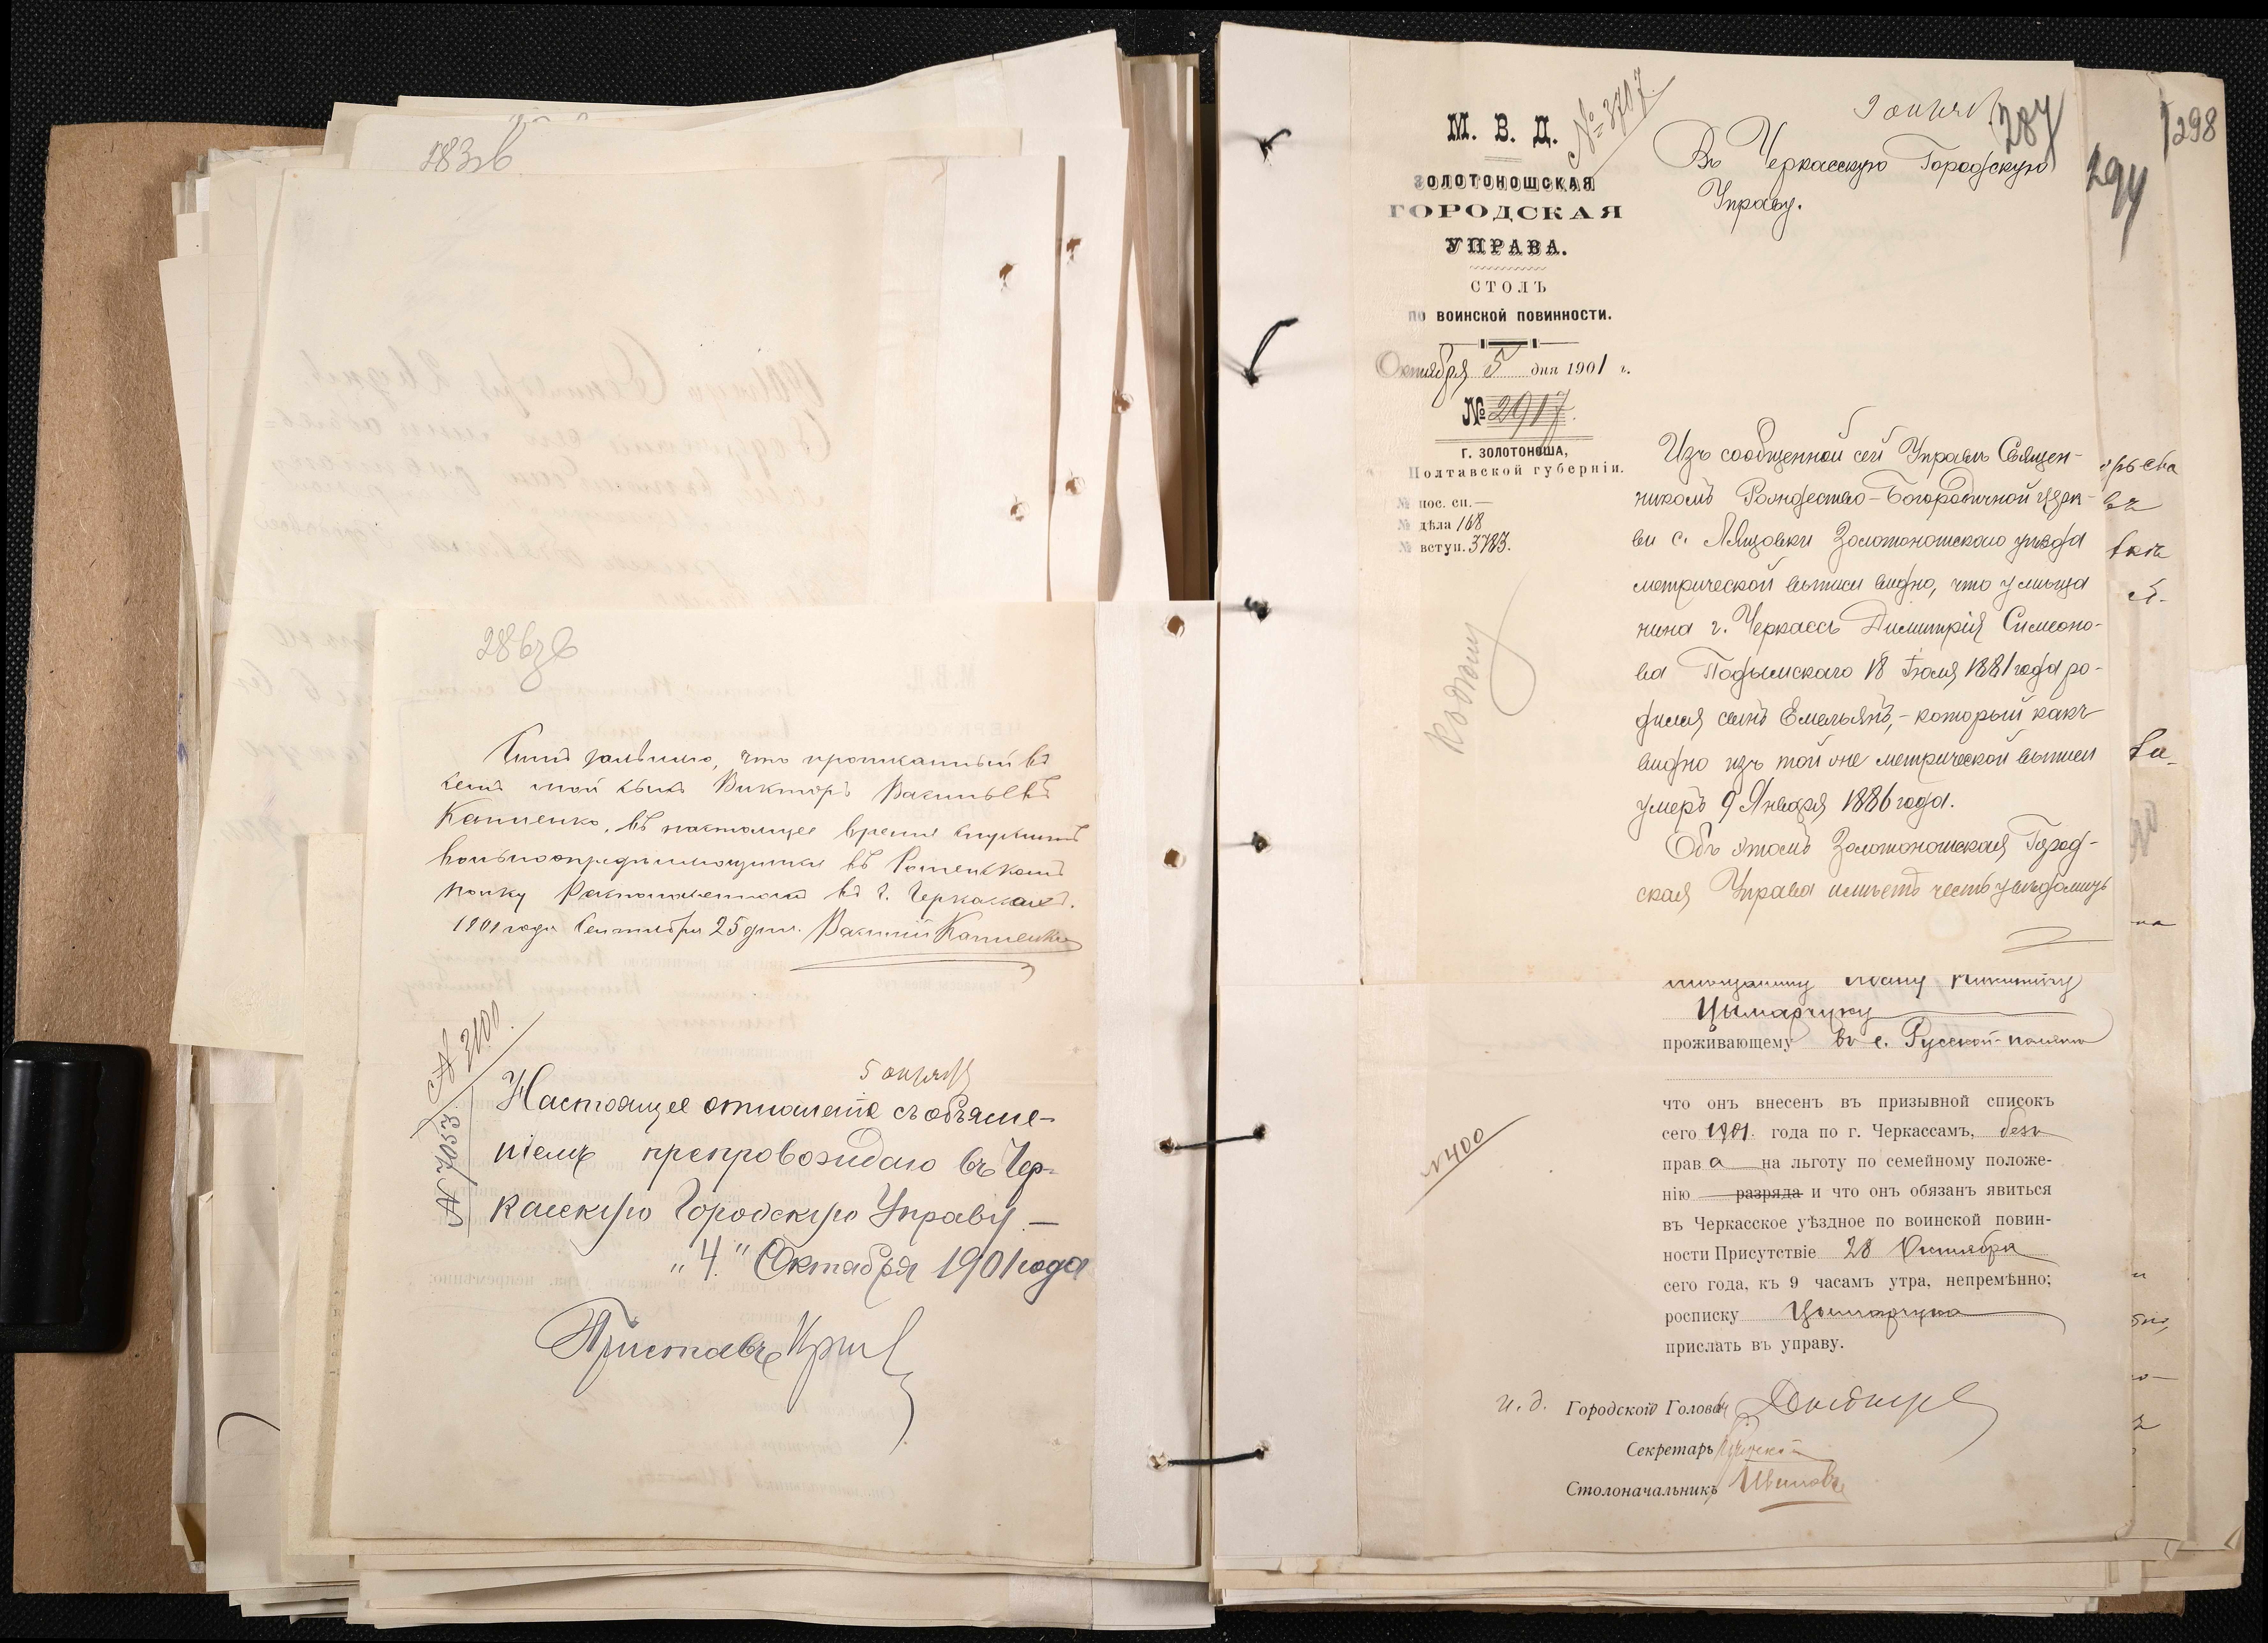 286 об
Симъ заявляю, что прописанный въ
семъ мой сынъ Викторъ Васильевъ
Капленко, въ настоящее время служитъ
вольноопредѣляющимся въ
полку расположенномъ въ г. Черкассахъ.
1901 года Сентября 25 дня. Василій Капленко
№ 3100.
№ 7053
5 октября
Настоящее отношеніе съ объясне-
ніемъ препровождаю въ Чер-
касскую Городскую Управу.—
„4“ Октября 1901 года
Приставъ
М. В. Д.
ЗОЛОТОНОШСКАЯ
ГОРОДСКАЯ
УПРАВА.
СТОЛЪ
ПО ВОИНСКОЙ ПОВИННОСТИ.
Октября 5 дня 1901 г.
№ 2917.
Г. ЗОЛОТОНОША,
Полтавской губерніи.
№ пос. сп. —
№ дѣла 168
№ вступ. 3783.
№ 3707.
9 октяб
287
294
298
Въ Черкасскую Городскую
Управу.
Изъ сообщенной сей Управѣ Священ-
никомъ Рождество-Богородичной церк-
ви с. Ляшовки Золотоношскаго уѣзда
метрической выписи видно, что у мѣща
нина г. Черкассъ Димитрія Симеоно-
ва Подымскаго 18 Іюля 1881 года ро-
дился сынъ Емельянъ,- который какъ
видно изъ той же метрической выписи
умеръ 9 Января 1886 года.
Объ этомъ Золотоношская Город-
ская Управа имѣетъ честь увѣдомить
Цымарчуку
проживающему въ с. Русской-полянѣ
что онъ внесенъ въ призывной списокъ
сего 1901. года по г. Черкассамъ, безъ
права на льготу по семейному положе-
нію разряда и что онъ обязанъ явиться
въ Черкасское уѣздное по воинской повин-
ности Присутствіе 28 Октября
сего года, къ 9 часамъ утра, непремѣнно;
росписку Цымарчука
прислать въ управу.
№400
И. д. Городского Головы
Секретарь
Столоначальникъ Ивановъ